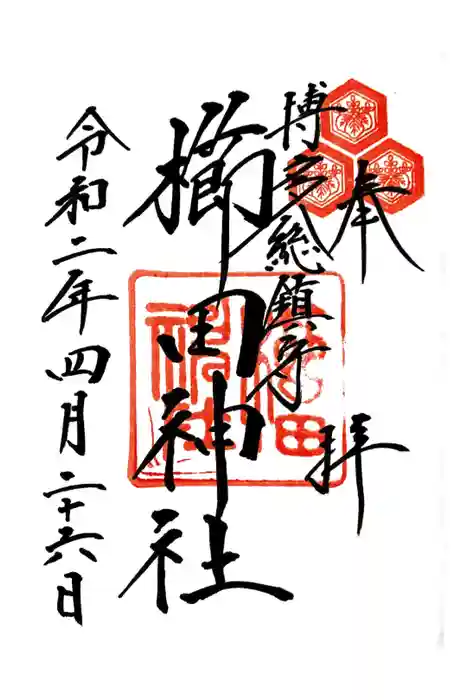 奉拝
博多総鎮守
櫛田神社
令和二年四月二十六日
櫛田
神社